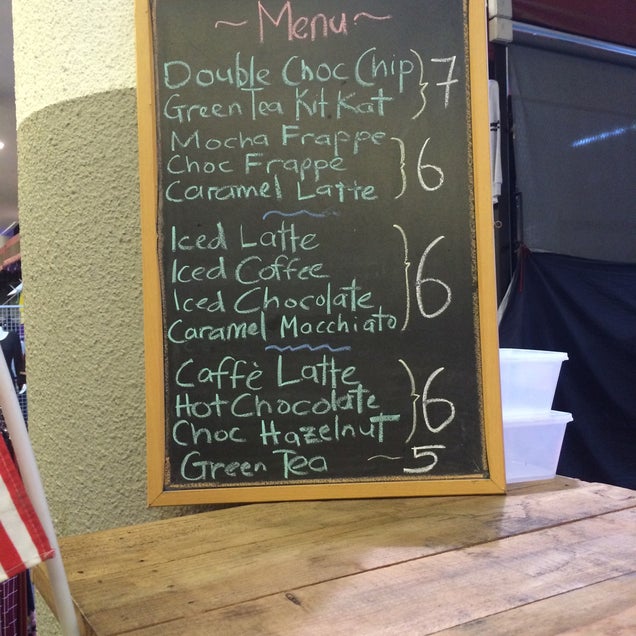 ~Menu~
Double Choc Chip } 7
Green Tea Kit Kat
Mocha Frappe
Choc Frappe } 6
Caramel Latte
Iced Latte
Iced Coffee
Iced Chocolate } 6
Caramel Macchiato
Caffè Latte
Hot Chocolate } 6
Choc Hazelnut
Green Tea ~ 5